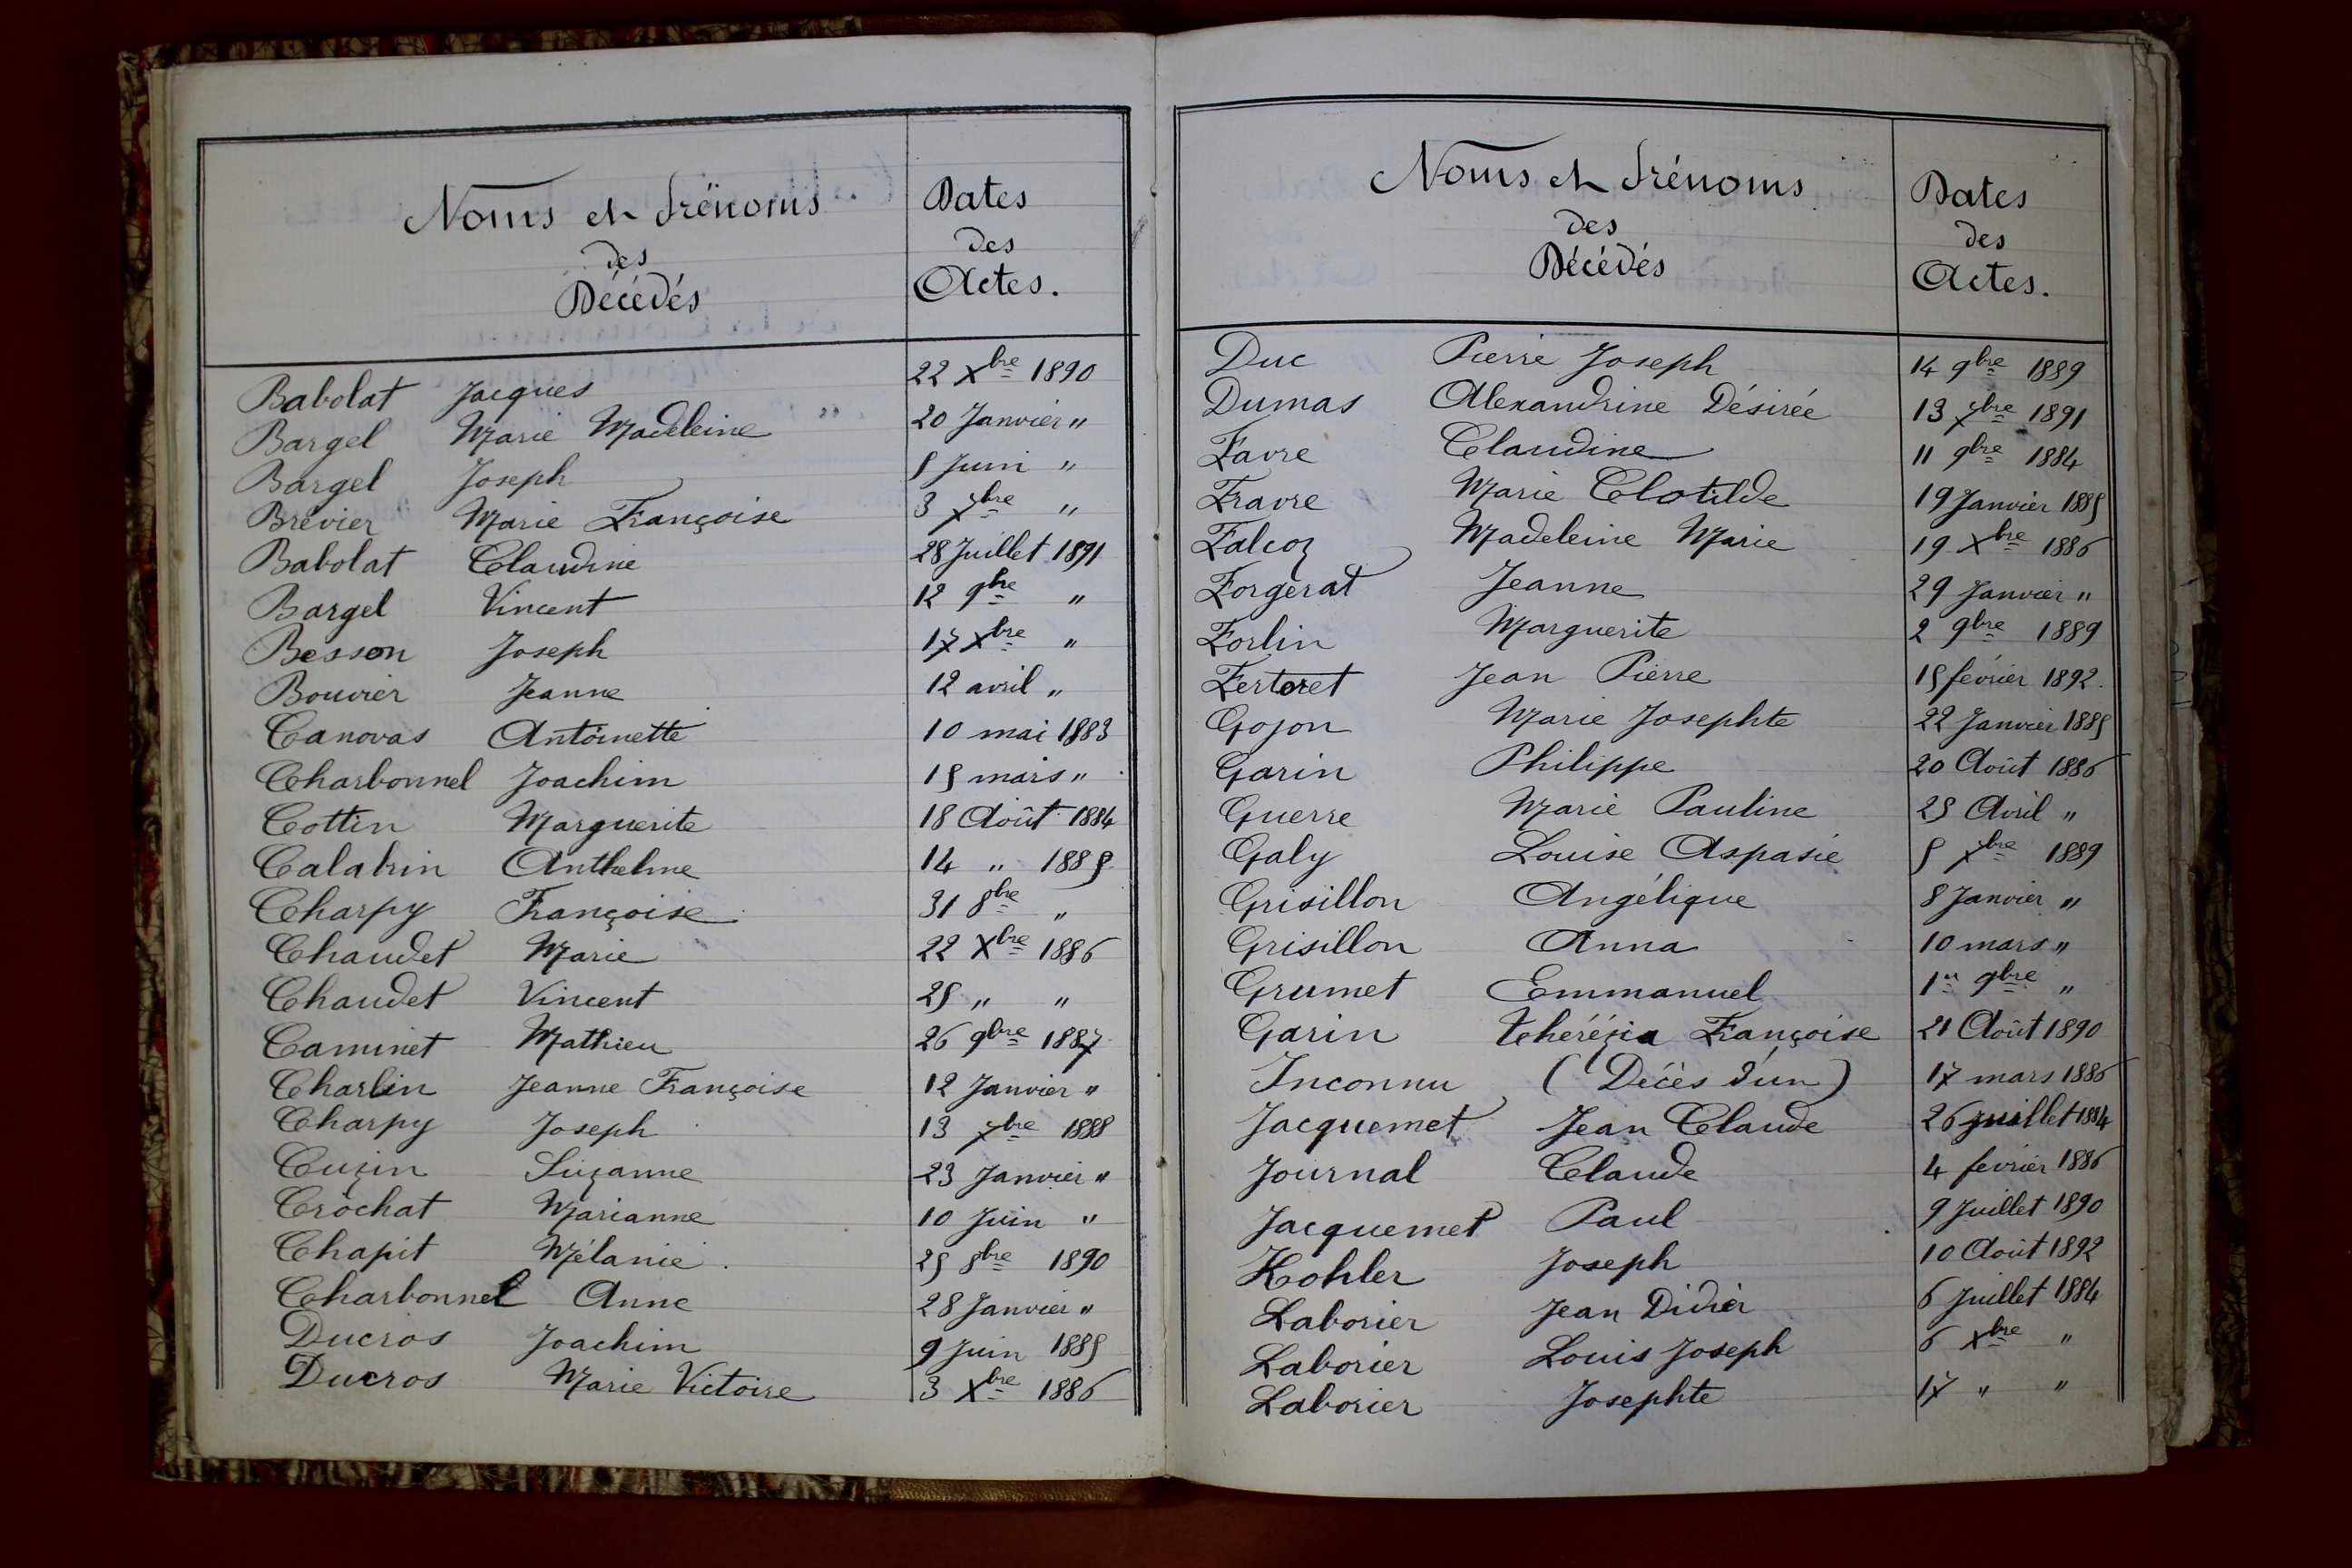 Noms et Prénoms
des
Décédés
Dates
des
Actes.
Babolat Jacques 22 Xbre 1890
Bargel Marie Madeleine 20 Janvier "
Bargel Joseph 5 Juin "
Brevier Marie Françoise 3 7bre "
Babolat Claudine 28 Juillet 1891
Bargel Vincent 12 9bre "
Besson Joseph 17 Xbre "
Bouvier Jeanne 12 avril "
Canovas Antoinette 10 mai 1883
Charbonnel Joachim 15 mars "
Cottin Marguerite 18 Août 1884
Calahin Anthelme 14 " 1885
Charpy Françoise 31 8bre "
Chaudet Marie 22 Xbre 1886
Chaudet Vincent 25 " "
Caminet Mathieu 26 9bre 1887
Charlin Jeanne Françoise 12 Janvier "
Charpy Joseph 13 7bre 1888
Cuzin Suzanne 23 Janvier "
Crochat Marianne 10 Juin "
Chapit Mélanie 25 8bre 1890
Charbonnel Anne 28 Janvier "
Ducros Joachim 9 Juin 1885
Ducros Marie Victoire 3 Xbre 1886
Noms et Prénoms
des
Décédés
Dates
des
Actes.
Duc Pierre Joseph 14 9bre 1889
Dumas Alexandrine Désirée 13 7bre 1891
Favre Claudine 11 9bre 1884
Fravre Marie Clotilde 19 Janvier 1885
Falcoz Madeleine Marie 19 Xbre 1886
Forgerat Jeanne 29 Janvier "
Forlin Marguerite 2 9bre 1889
Fertoret Jean Pierre 15 février 1892.
Gojon Marie Josephte 22 Janvier 1885
Garin Philippe 20 Août 1886
Guerre Marie Pauline 25 Avril "
Galy Louise Aspasie 5 7bre 1889
Grisillon Angélique 8 Janvier "
Grisillon Anna 10 mars "
Grumet Emmanuel 1er 9bre "
Garin Thérézia Françoise 21 Août 1890
Inconnu (Décès d'un) 17 mars 1886
Jacquemet Jean Claude 26 juillet 1884
Journal Claude 4 fevrier 1886
Jacquemet Paul 9 Juillet 1890
Kohler Joseph 10 Août 1892
Laborier Jean Didier 6 Juillet 1884
Laborier Louis Joseph 6 Xbre "
Laborier Josephte 17 " "